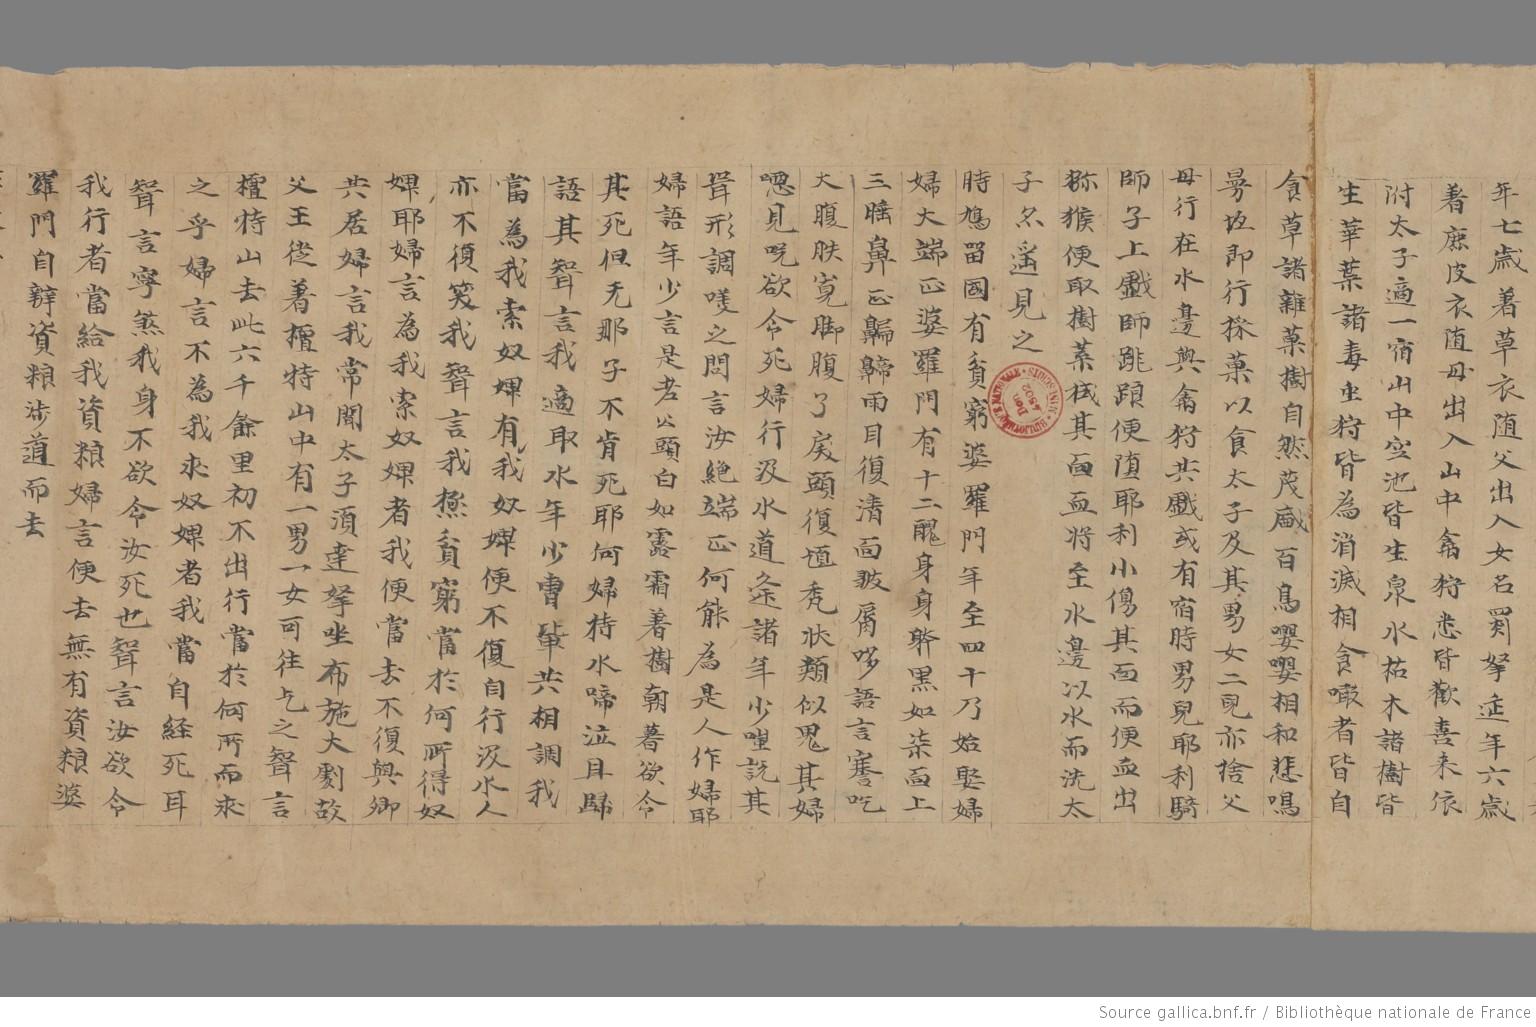 年七歲著草衣随父出入女名罽拏延年六歲
著鹿皮衣随母出入山中禽狩悉皆歡喜来依
附太子適一宿山中空池皆生泉水枯木諸樹皆
生華葉諸毒虫狩皆為消滅相食噉者皆自
食草諸雜菓樹自然茂盛百鳥嚶嚶相和悲鳴
曼坻即行採菓以食太子及其男女二兒亦捨父
母行在水邊與禽狩共戲或有宿時男兒耶利騎
師子上戲師跳踉便堕耶利小傷其面而便血出
狝猴便取樹葉拭其面血将至水邊以水而洗太
子尒遥見之
時鳩留國有貧窮婆羅門年至四十乃始娶婦
婦大端正婆羅門有十二醜身身躰黒如柒面上
三𨄔鼻正匾㔸兩目復清面皺脣哆語言謇吃
大腹肤寛脚腹了戾頭復𩑶秃状類似鬼其婦
𢙣見呪欲令死婦行汲水道逢諸年少嗤説其
聟形調嘆之問言汝絶端正何能為是人作婦耶
婦語年少言是老公頭白如露霜著樹朝暮欲令
其死但无那子不肯死耶何婦持水啼泣且歸
語其聟言我適取水年少曹輩共相調我
當為我索奴婢有我奴婢便不復自行汲水人
亦不復笑我聟言我極貧窮當於何所得奴
婢耶婦言為我索奴婢者我便當去不復與卿
共居婦言我常聞太子湏逹拏坐布施大劇故
父王徙著檀特山中有一男一女可往乞之聟言
檀特山去此六千餘里初不出行當於何所而求
之乎婦言不為我求奴婢者我當自経死耳
聟言寧煞我身不欲令汝死也聟言汝欲令
我行者當給我資粮婦言便去無有資粮婆
羅門自辦資粮涉道而去
BIBLIOTHÈQUE NATIONALE
MANUSCRITS
Don
4502
Source gallica.bnf.fr / Bibliothèque nationale de France